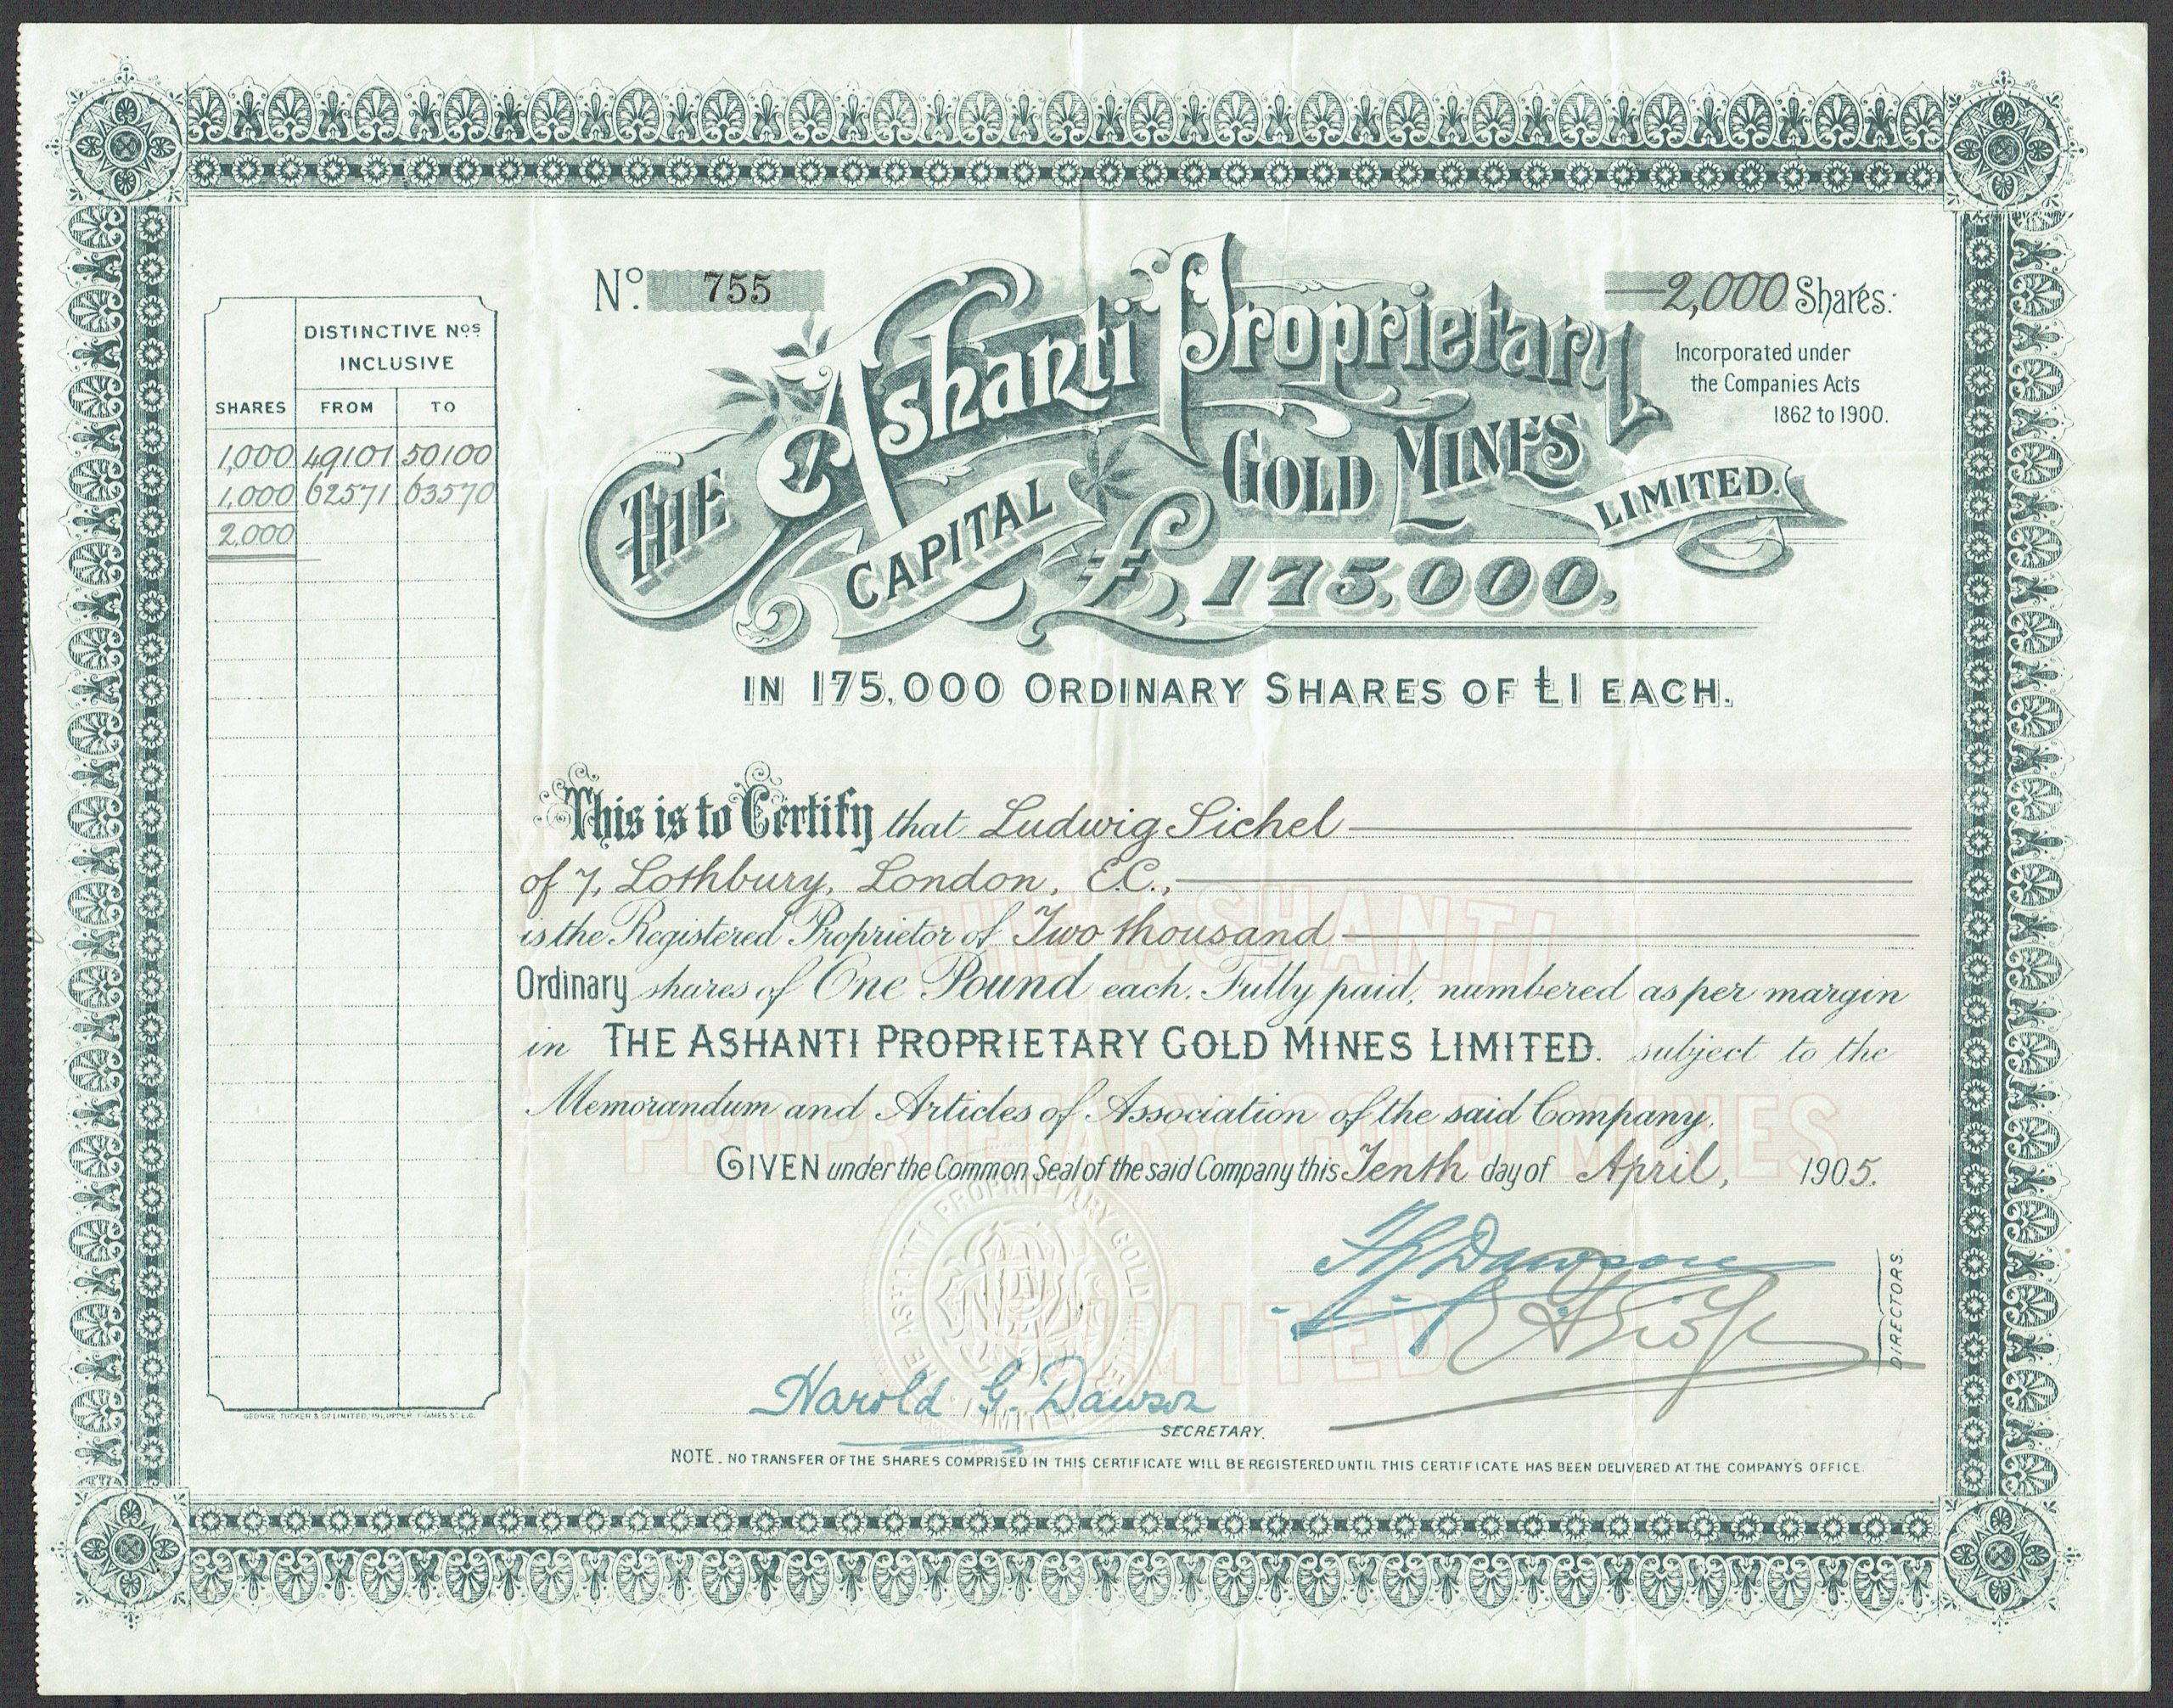 No. 755
2,000 Shares:
The Ashanti Proprietary
Gold Mines
Limited.
Incorporated under
the Companies Acts
1862 to 1900.
Capital
£175,000,
IN 175,000 ORDINARY SHARES OF £1 EACH.
DISTINCTIVE Nos
INCLUSIVE
SHARES FROM TO
1,000 49101 50100
1,000 62571 63570
2,000
This is to Certify that Ludwig Sichel
of 7, Lothbury, London, E.C.,
is the Registered Proprietor of Two thousand
Ordinary shares of One Pound each. Fully paid, numbered as per margin
in THE ASHANTI PROPRIETARY GOLD MINES LIMITED. subject to the
Memorandum and Articles of Association of the said Company.
GIVEN under the Common Seal of the said Company this Tenth day of April, 1905.
THE ASHANTI
PROPRIETARY GOLD MINES
LIMITED
THE ASHANTI PROPRIETARY GOLD MINES LIMITED
Dawson
DIRECTORS.
Harold G. Dawson
SECRETARY.
GEORGE TUCKER & CO LIMITED, 191, UPPER THAMES ST E.C.
NOTE. NO TRANSFER OF THE SHARES COMPRISED IN THIS CERTIFICATE WILL BE REGISTERED UNTIL THIS CERTIFICATE HAS BEEN DELIVERED AT THE COMPANY'S OFFICE.